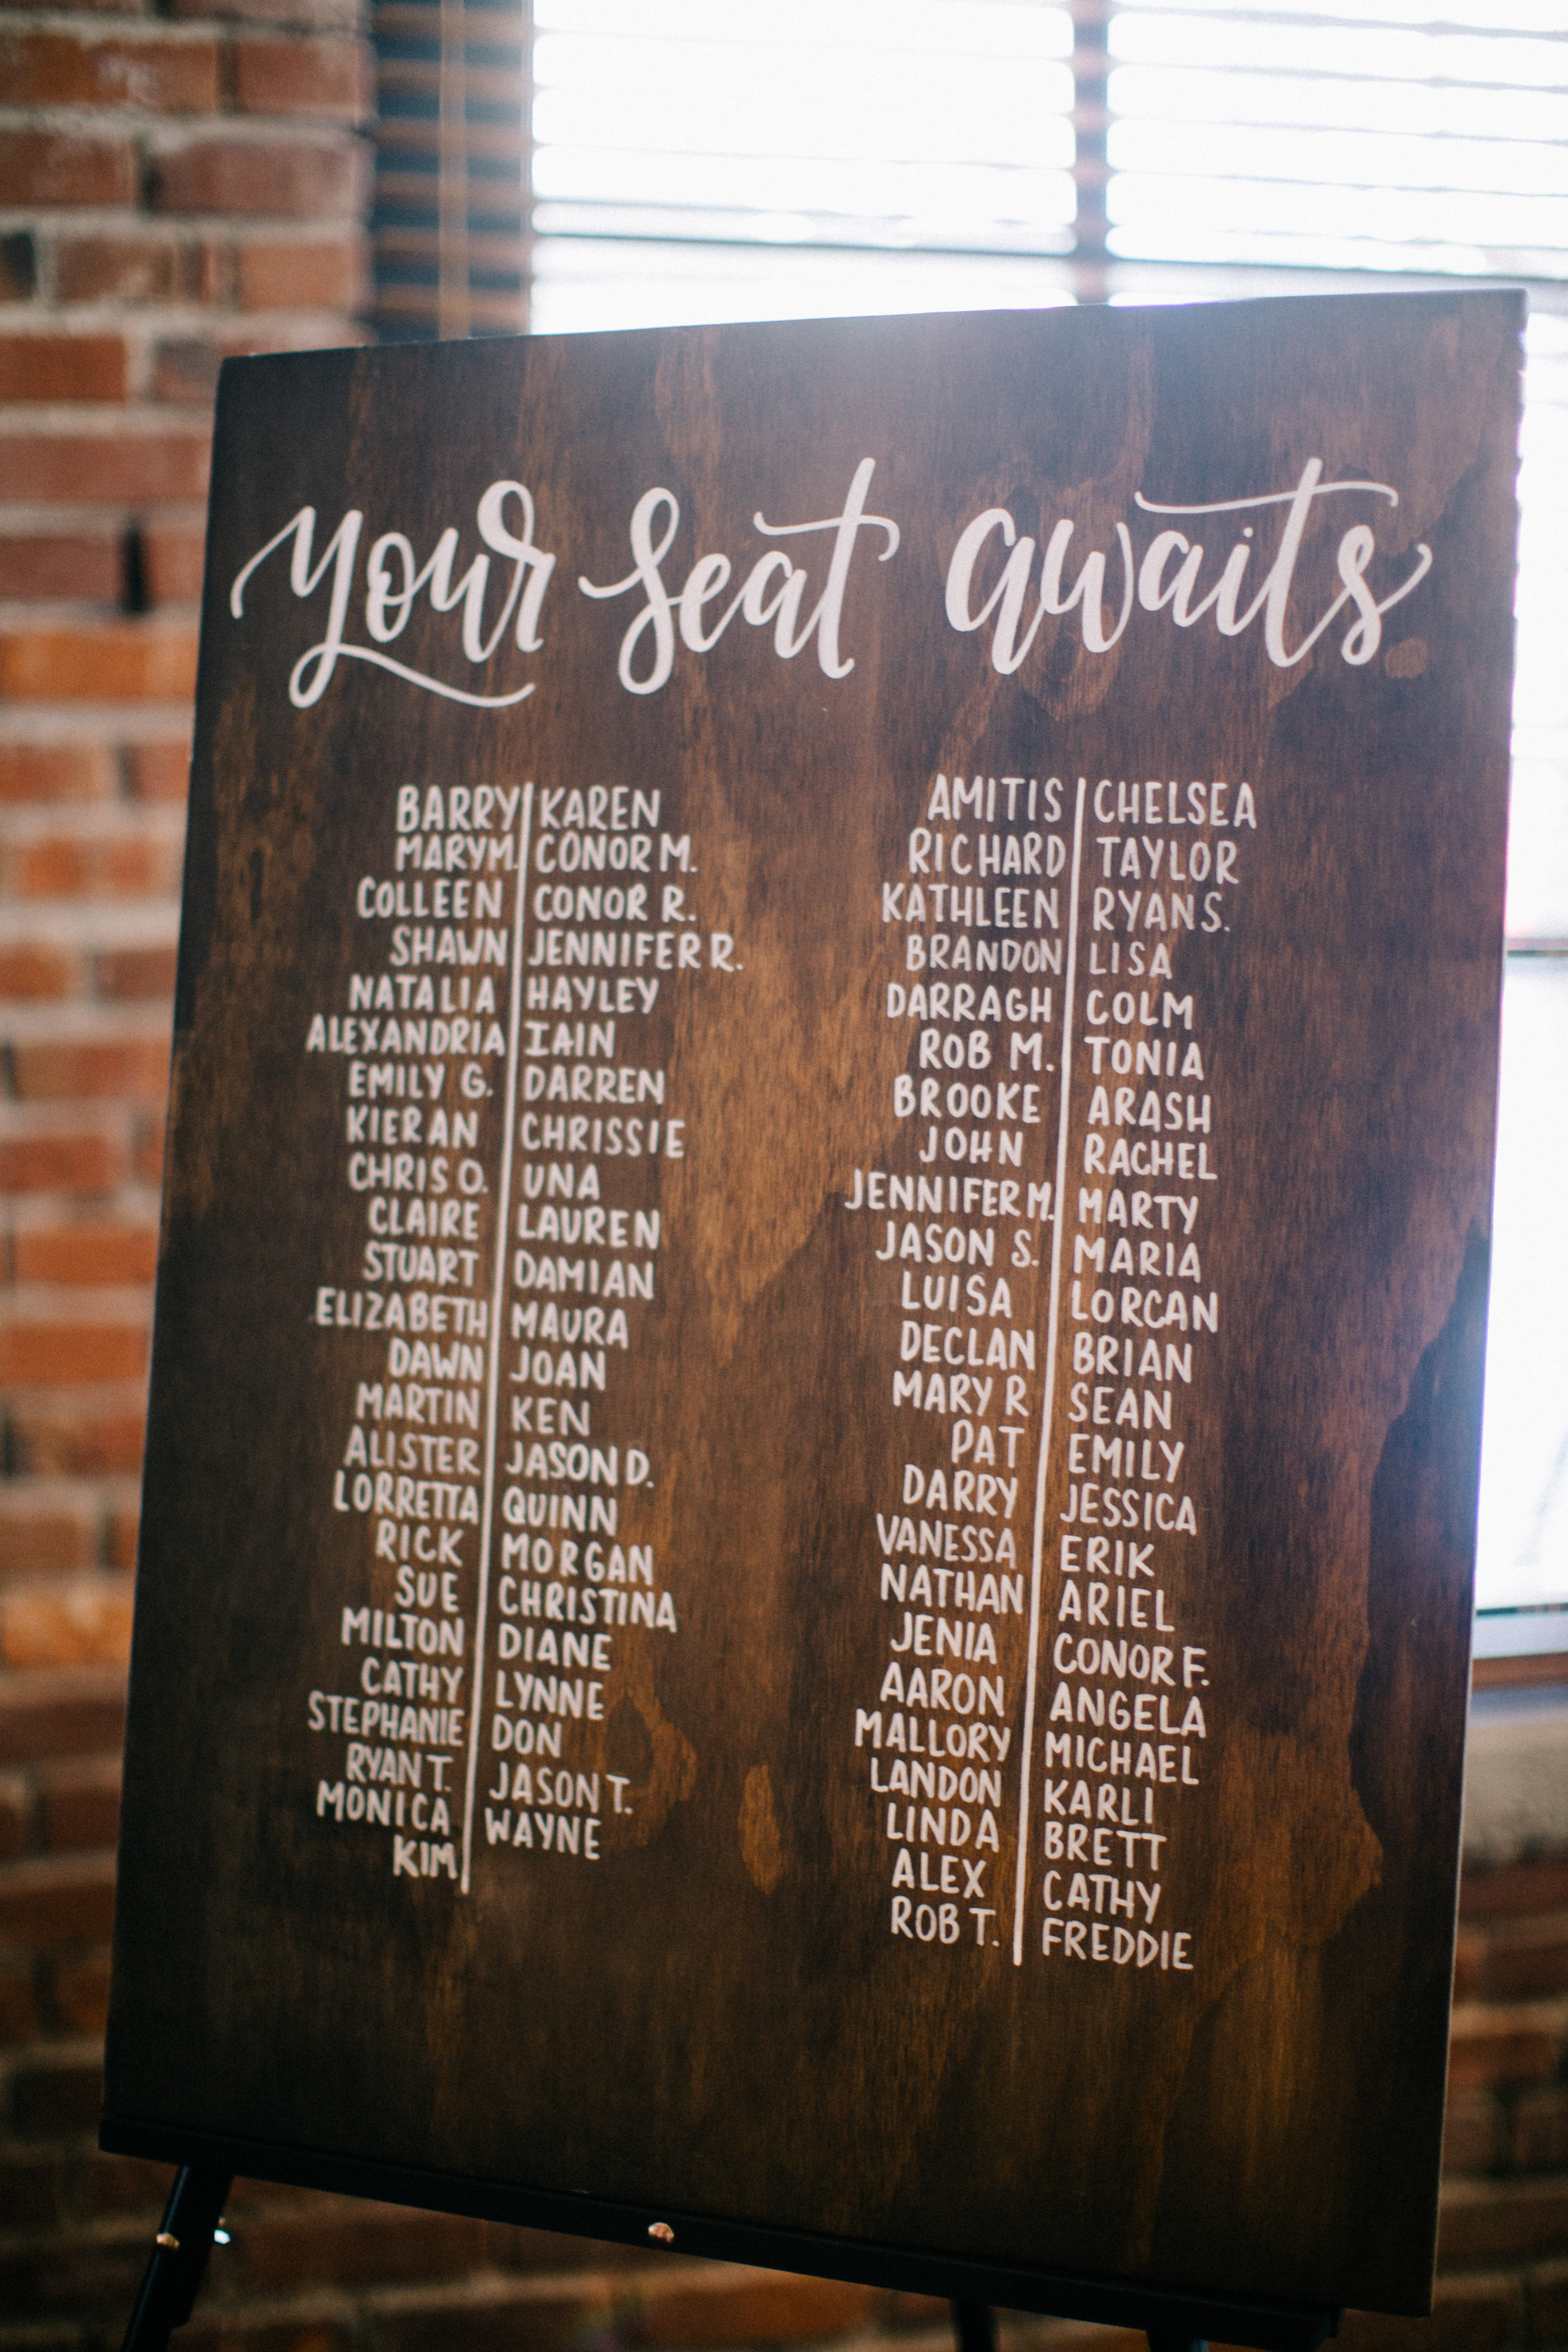 your seat awaits
BARRY KAREN
MARY M. CONOR M.
COLLEEN CONOR R.
SHAWN JENNIFER R.
NATALIA HAYLEY
ALEXANDRIA IAIN
EMILY G. DARREN
KIERAN CHRISSIE
CHRIS O. UNA
CLAIRE LAUREN
STUART DAMIAN
ELIZABETH MAURA
DAWN JOAN
MARTIN KEN
ALISTER JASON D.
LORRETTA QUINN
RICK MORGAN
SUE CHRISTINA
MILTON DIANE
CATHY LYNNE
STEPHANIE DON
RYAN T. JASON T.
MONICA WAYNE
KIM
AMITIS CHELSEA
RICHARD TAYLOR
KATHLEEN RYAN S.
BRANDON LISA
DARRAGH COLM
ROB M. TONIA
BROOKE ARASH
JOHN RACHEL
JENNIFER M. MARTY
JASON S. MARIA
LUISA LORCAN
DECLAN BRIAN
MARY R SEAN
PAT EMILY
DARRY JESSICA
VANESSA ERIK
NATHAN ARIEL
JENIA CONOR F.
AARON ANGELA
MALLORY MICHAEL
LANDON KARLI
LINDA BRETT
ALEX CATHY
ROB T. FREDDIE